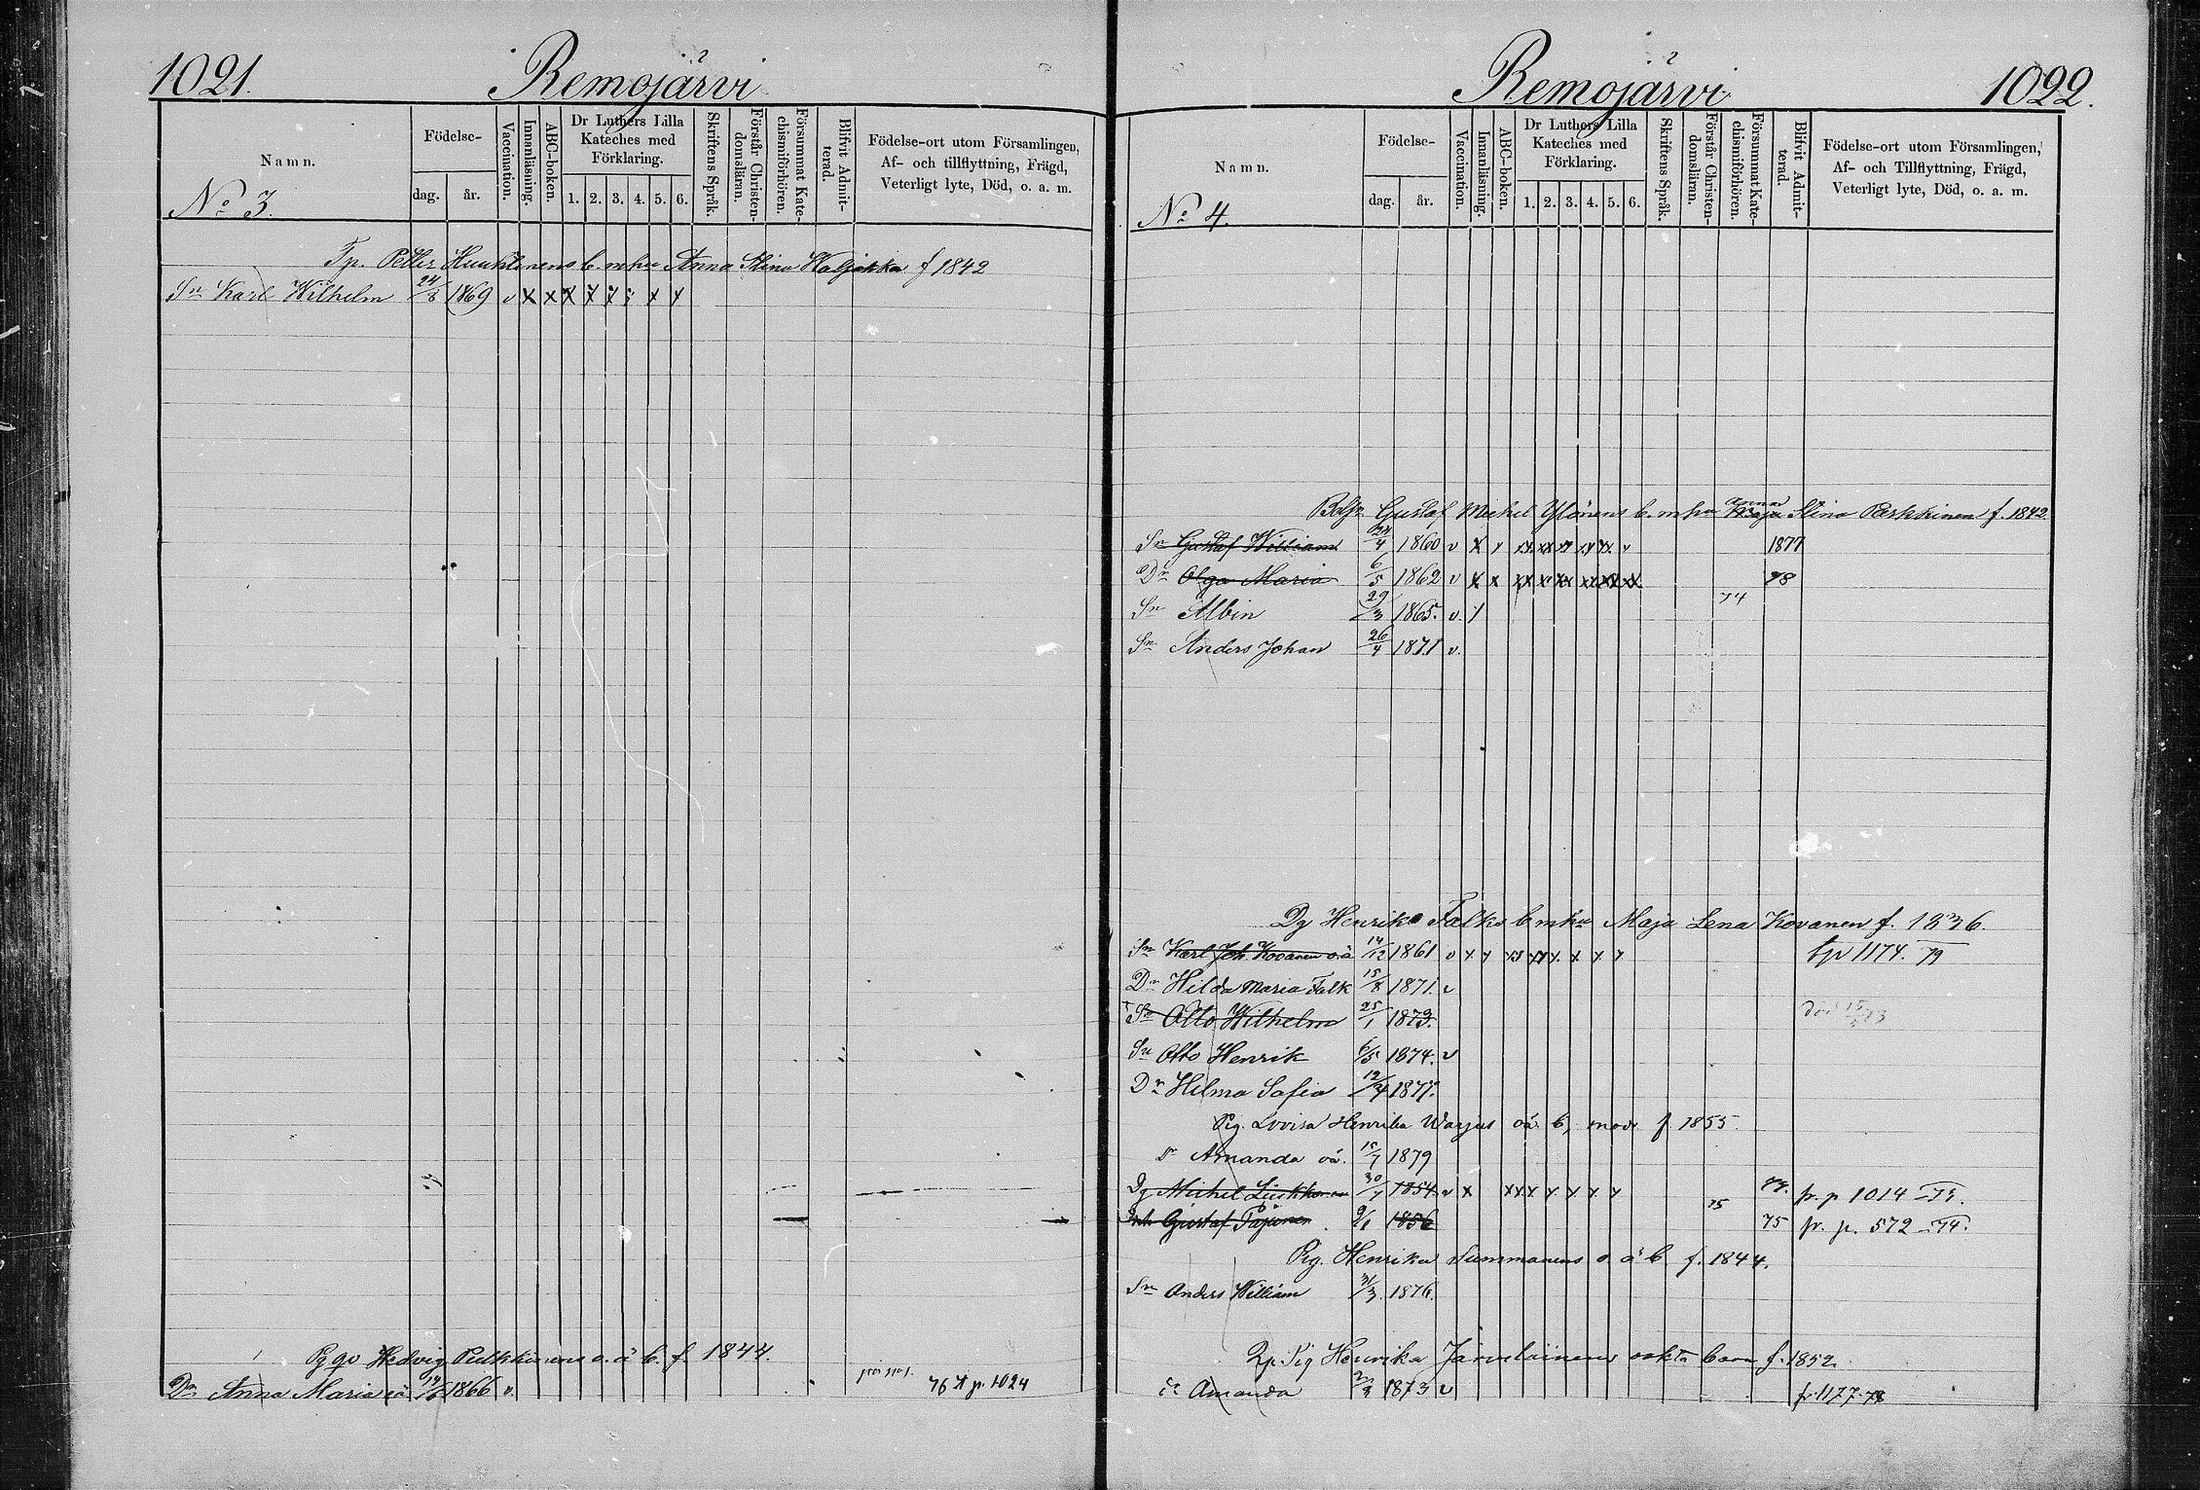 1021.
Remojärvi
Namn.
Födelse-
dag.
år.
Vaccination.
Innanläsning.
ABC-boken.
Dr Luthers Lilla
Kateches med
Förklaring.
1. 2. 3. 4. 5. 6.
Skriftens Språk.
Förstår Christen-
domsläran.
Försummat Kate-
chismiförhören.
Blifvit Admit-
terad.
Födelse-ort utom Församlingen,
Af- och tillflyttning, Frägd,
Veterligt lyte, Död, o. a. m.
No 3.
Tp. Petter b. m hu Anna Stina f 1842
Sn Karl Wilhelm 24/8 1869 v x x
Pig Hedvig Pulkkinens o. ä b. f. 1844.
Dr Anna Maria oä 1866 v. 76 p. 1024
Remojärvi
1022.
Namn.
Födelse-
dag.
år.
Vaccination.
Innanläsning.
ABC-boken.
Dr Luthers Lilla
Kateches med
Förklaring.
1. 2. 3. 4. 5. 6.
Skriftens Språk.
Förstår Christen-
domsläran.
Försummat Kate-
chismiförhören.
Blifvit Admit-
terad.
Födelse-ort utom Församlingen,
Af- och Tillflyttning, Frägd,
Veterligt lyte, Död, o. a. m.
No 4.
Gustaf Michel Ylönens b. m hu Maja Anna Stina Parkkinen f. 1842
Sn Gustaf William 24/4 1860 v 1877
Dr Olga Maria 6/5 1862 v 78
Sn Albin 29/3 1865. v. 74
Sn Anders Johan 26/4 1871 v.
Dg Henrik Falks b m hu Maja Lena Kovanen f. 1836.
Sn Karl Joh. Kovanen oä 14/12 1861 v 1174. 79
Dr Hilda Maria Falk 15/8 1871. v
Sn Otto Wilhelm 25/1 1873. död
Sn Otto Henrik 6/5 1874. v
Dr Hilma Sofia 12/4 1877.
Pig. Lovisa Henrika Warjus oä. b, mod f 1855
Dr Amanda oä. 15/7 1879
Dg Michel 30/7 1854. v x fr. p 1014
Gustaf Pajunen 9/1 1856 75 75 fr. p. 572 74.
Pig. Henrika Summanens o. ä b f. 1844.
Sn Anders William 31/3 1876.
Pig Henrika Järveläinens oäkta barn f. 1852.
Dr Amanda 2/3 1873 v fr. 1177 78